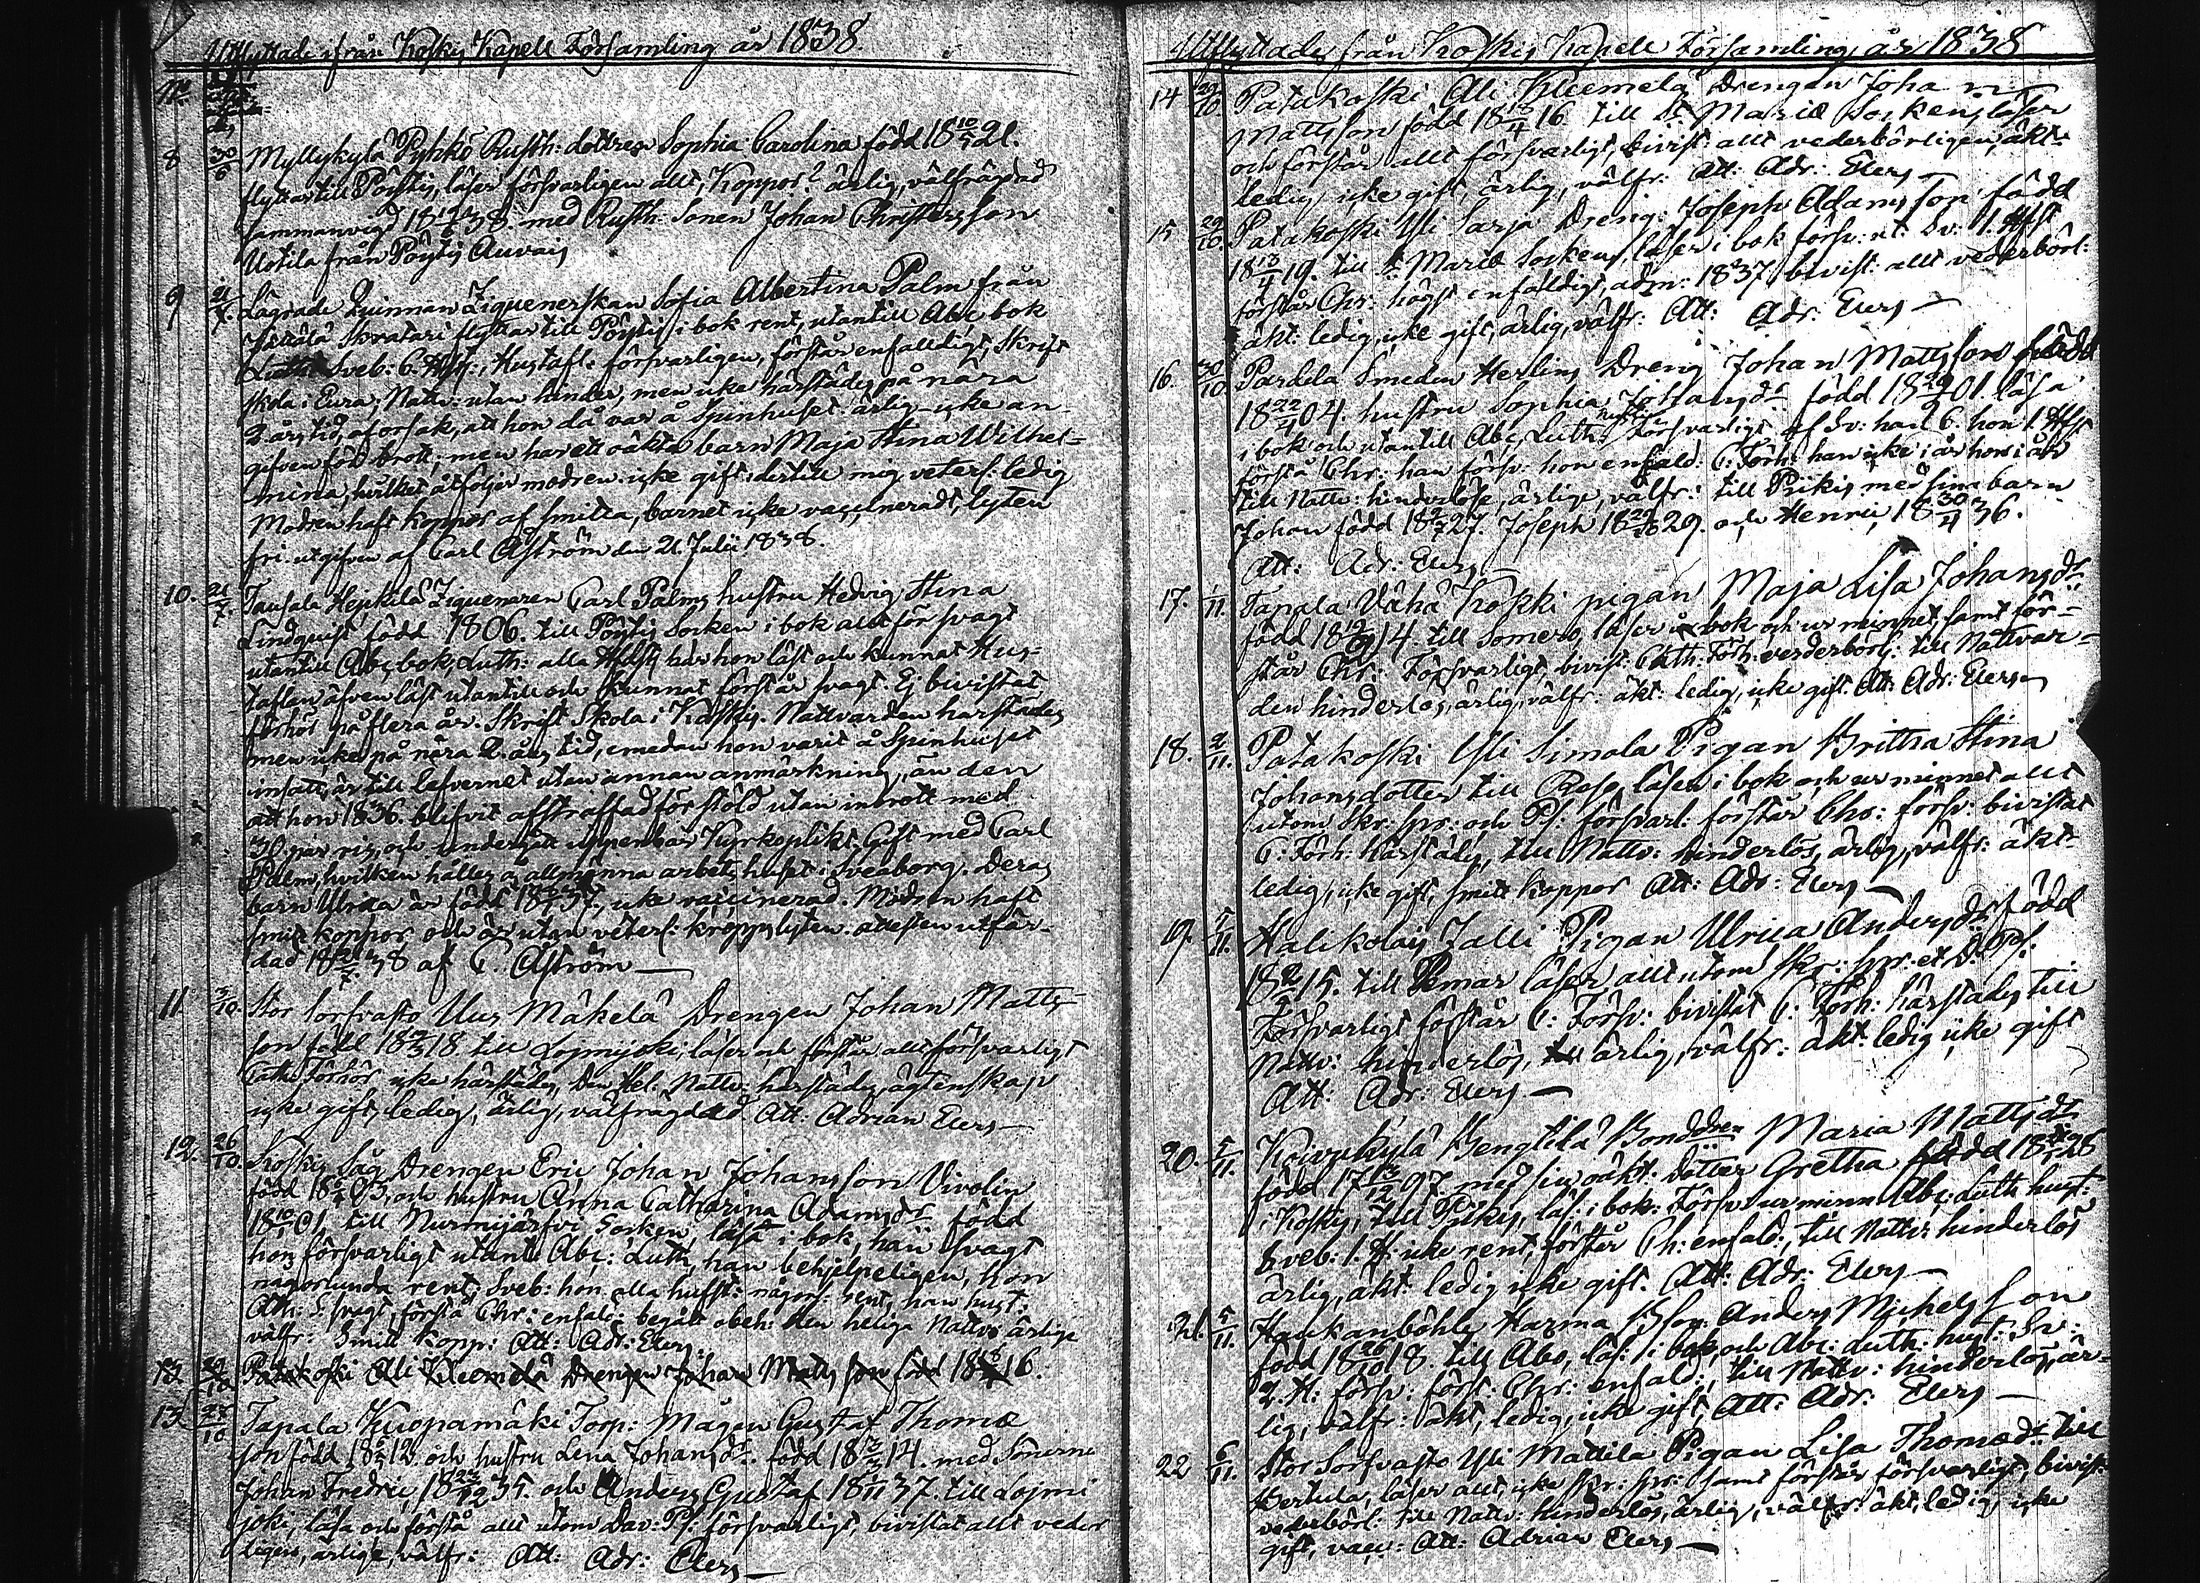 Utflyttade ifrån Koskis Kapell Församling år 1838.
No
8 30/6 Myllykylä Pyhkö Rusth: dottren Sophia Carolina född 18 10/5 21.
flyttar till Pöytis, läser försvarligen allt, Koppor? ärlig, välfrägdad
sammanvigd 18 38. med Rusth: Sonen Johan Christersson
Uotila från Pöytis Auvais
9 21/7 Lägrade Quinnan Ziguenerskan Sofia Albertina Palm från
flyttar till Pöytis i bok rent, utantill Abc bok
Sveb: 6. Hfst:, Hustafl. försvarligen, förstår enfalldigt, Skrift
skola i Eura; Nattv: utan hinder, men icke härstädes på nära
2 års tid, af orsak, att hon då var å Spinhuset. ärlig icke an-
gifven för brott; men har ett oäkta barn Maja Stina Wilhel-
mina, hvilket åtföljer modren. icke gift. dertill mig veterl: ledig
Modren haft koppor af smitta, barnet icke vaccineradt, lyten
fri. utgifven af Carl Åström den 21 Julii 1838.
10. 21/7 Tausala Heikkilä Ziguenaren Carl Palms hustru Hedvig Stina
Lindquist född 1806. till Pöytis Socken i bok allt för svagt
utantill Abc bok, Luth: alla Hfdst: har hon läst och kunnat Hus-
taflan äfven läst utantill och kunnat förstår svagt. Ej bivistat
förhör på flera år. Skrift Skola i Koskis. Nattvarden härstädes
men icke på nära 2 års tid, emedan hon varit å Spinhuset
insatt, är till lefvernet utan annan anmärkning, än den
att hon 1836. blifvit afstraffad för stöld utan inbrott med
30 par ris, och undergått uppenbar Kyrkoplikt. Gift med Carl
Palm, hvilken hålles å allmänna arbetshuset i Sveaborg. Deras
barn Ulrica är född 18 37, icke vaccinerad. Modren haft
smitt koppor och är utan veterl: kropps lyten. attesten utfär-
dad 18 21/7 38 af C. Åström —
11 3/10. Stor Sorfvasto Uus Mäkelä Drengen Johan Matts-
son född 18 18 till Lojmijoki; läser och förstår allt försvarligt
Cath: Förhör icke härstädes, Den Hel. Nattv: härstädes, ägtenskap
icke gift, ledig, ärlig, välfrägdad. Att. Adrian Elers —
12. 26/10. Koskis Såg Drengen Eric Johan Johansson Vivolin
född 18 03, och hustru Anna Catharina Adamsdr född
18 10/ 01 till Nurmijärfvi Socken, läsa i bok, han svagt
hon försvarligt utantill Abc: Luth, han behjelpeligen, hon
någorlunda rent, Sveb: hon alla hufst: någorl: rent, han hust:
Ath: S. svagt, förstå Chr: enfald: begått obeh: den heliga Nattv: ärlige
välfr: Smitt kopp: Att: Adr: Elers.
13. 29/10 Patakoski Ali Kleemelä Drengen Johan Mattsson född 18 16.
13. 27/10 Tapala Kuopamäki Torp: Mågen Gustaf Thomæ
son född 18 12. och hustru Lena Johansdr. född 18 14. med Sönerne
Johan Fredric, 18 23/12 35. och Anders Gustaf 18 /11 37. till Lojmi
joki, läsa och förstå allt utom Dav: Ps: försvarligt, bivistat allt veder
ligen, ärlige, välfr: Att: Adr: Elers —
Utflyttade från Koskis Kapell Församling, år 1838
14 29/10. Patakoski Ali Kleemelä Drengen Johan
Mattsson född 18 13/4 16. till St Mariæ Socken, läser
och förstår allt försvarligt, bivist: allt vederbörligen, äkt:
ledig, icke gift, ärlig, välfr: Att: Adr: Elers —
15 29/10. Patakoski Yli Sarja Dreng: Joseph Adamsson född
18 13/4 19. till St Mariæ Socken, läser i bok försv: ut: Sv: 1. Hfst
förstår Chr: högst enfäldigt, adm: 1837 bivist: allt vederbörl:
äkt: ledig, icke gift, ärlig, välfr: Att: Adr: Elers —
16. 30/10. Pardela Smeden Herlins Dreng Johan Mattsson
18 22/4 04. hustru Sophia Johansdr född 18 01. läsa
i bok och utantill Abc, Luth, hustafl: försvarligt af Sv: han 6. hon 1. Hfst
förstå Chr: han försv: hon enfald: C: Förh: han icke i år hon i år
till Nattv: hinderlöse, ärlige, välfr: till Pikis med sina barn
Johan född 18 2/7 27. Joseph 18 29. och Henric 18 30/4 36.
Att: Adr: Elers —
17. /11. Tapala Vähä Koski pigan Maja Lisa Johansdr
född 18 12/9 14. till Somero, läser i bok och ur minnet, samt för-
står Chr: försvarligt, bivist: Cath: Förh: vederbörl: till Nattvar-
den hinderlös, ärlig, välfr: äkt: ledig, icke gift. Att. Adr: Elers
18. 2/11. Patakoski Yli Simola Pigan Britha Stina
Johansdotter till Reso, läser i bok och ur minnet allt
utom Skr: spr: och Ps: försvarl: förstår Chr: försv: bivistat
C: Förh: härstädes, till Nattv: hinderlös, ärlig, välfr: äkt:
ledig, icke gift, smitt koppor Att: Adr: Elers —
19. 5/11. Halikolais Jalli Pigan Ulrica Andersdr född
18 15. till Pemar läser allt utom skr: spr: et D. Ps:
Försvarligt förstår C: Försv: bivistat C: Förh: härstädes till
Nattv: hinderlös, ärlig, välfr: äkt: ledig icke gift
Att: Adr: Elers —
20. 5/11. Koivukylä Bengtilä Bonddren Maria Mattsdr
född 17 13/12 97 med sin oäkt: dotter Gretha född 18 28
i Koskis, till Pikis, läs: i bok: Försv: ur minn Abc, Luth hust:
Sveb: 1. H: icke rent, förstår Ch: enfald:, till Nattv: hinderlös
ärlig, äkt: ledig icke gift. Att: Adr: Elers —
21. 5/11. Haukanböhle Harma Bson Anders Michelsson
född 18 26/10 18. till Åbo, läs: i bok, och Abc: Luth: hust: Sv:
2. H: försv: först: Chr: enfald:, till Nattv: hinderlös, är-
lig, välfr: äkt, ledig, icke gift, Att: Adr: Elers —
22 6/11. Stor Sorfvasto Yli Mattila Pigan Lisa Thomædr till
Bertula, läser allt, icke skr: spr: samt förstår försvarligt, bivist:
vederbörl: till Nattv: hinderlös, ärlig, välfr: äkt, ledig, icke
gift, vacc: Att: Adrian Elers —